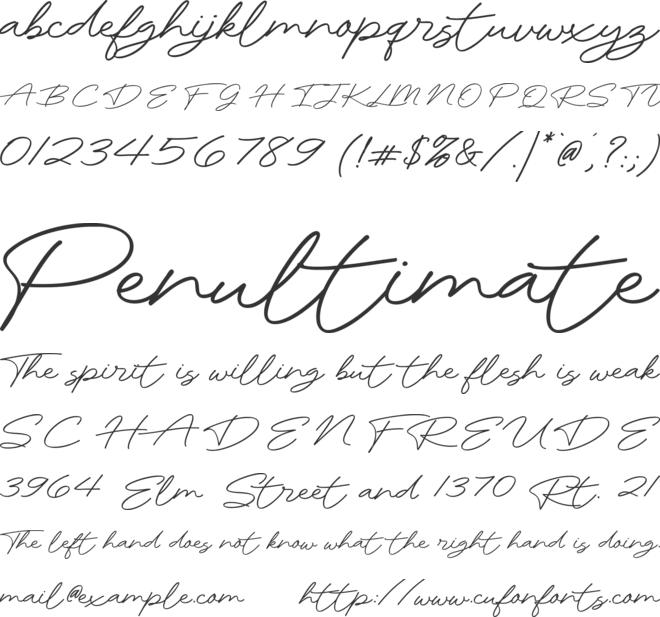 abcdefghijklmnopqrstuvwxyz
ABCDEFGHIJKLMNOPQRSTU
0123456789 (!#$%&/.|*`@´,?:;)
Penultimate
The spirit is willing but the flesh is weak
SCHADENFREUDE
3964 Elm Street and 1370 Rt. 21
The left hand does not know what the right hand is doing.
mail@example.com http://www.cufonfonts.com